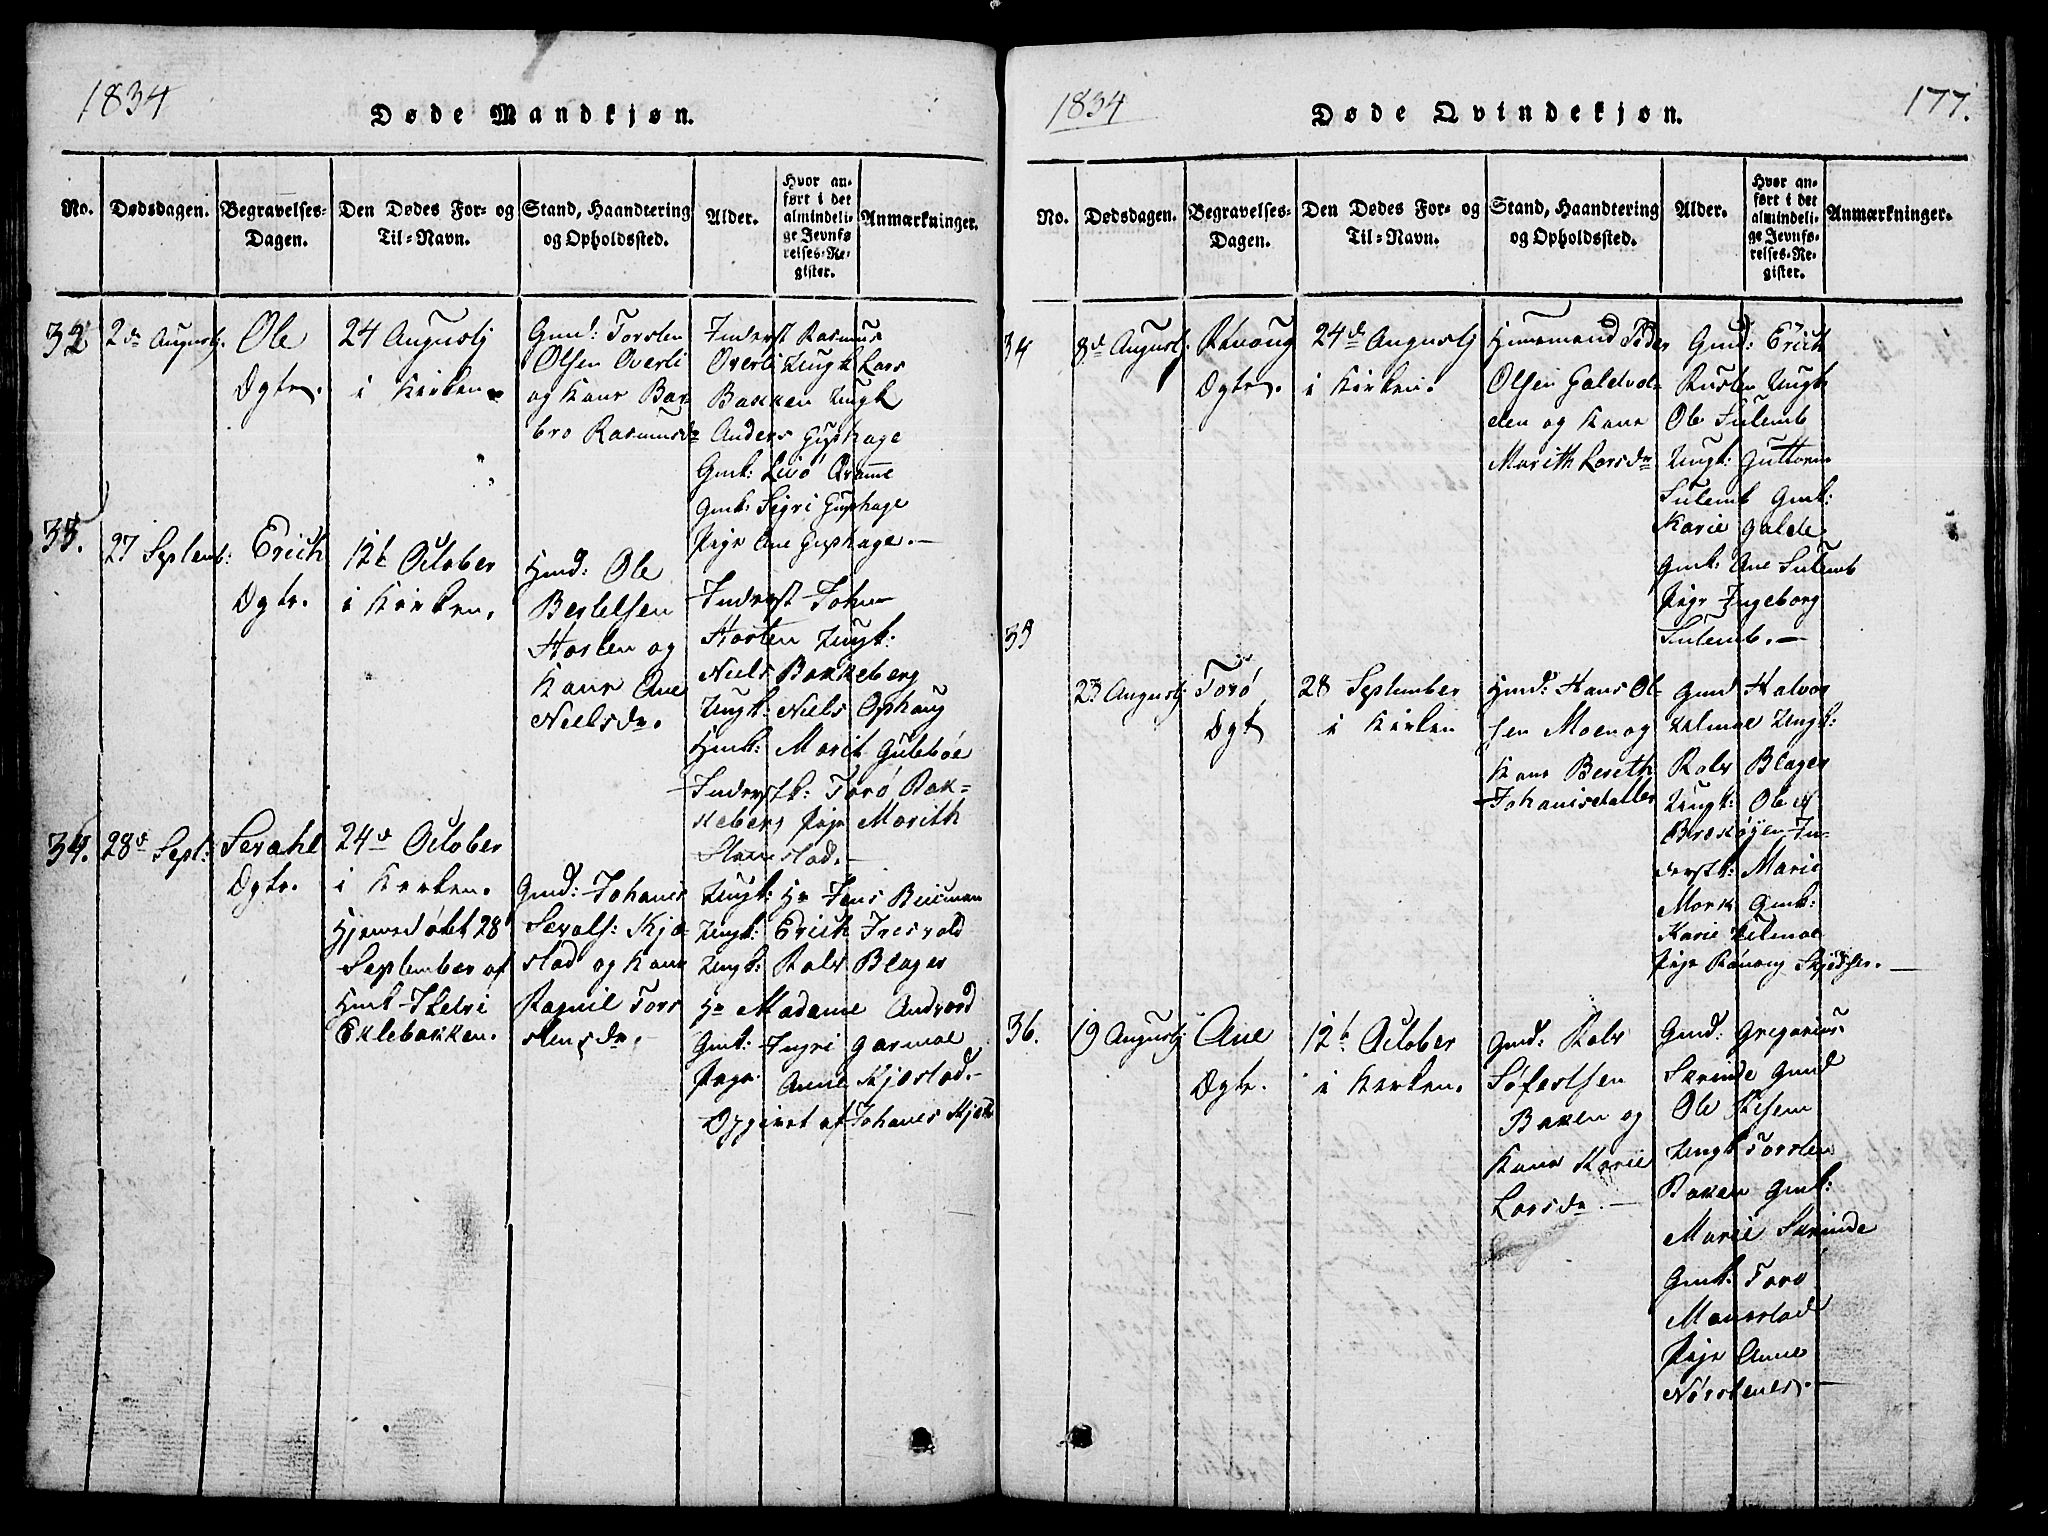 1834
Døde Mandkjøn.
No.
Dødsdagen.
Begravelses-
Dagen.
Den Dødes For- og
Til-Navn.
Stand, Haandtering
og Opholdssted.
Alder.
Hvor an-
ført i det
almindeli-
ge Jevnfø
relses-Re-
gister.
Anmærkninger.
32
2den Augustj.
Ole
Dgtr.
24 Augustj
i Kirken
Gmd: Torsten
Olsen Overli
og Kone Bar
bro Rasmusdr
Inderst Rasmus
Overli Ungk Lars
Bakken Ungk
Anders
Gmk:
Gmk: Sigri
Pige Ane
33.
27 Septemb:
Erich
Dgtr.
12t October
i Kirken.
Hmd: Ole
Bertelsen
Horten og
Kone Ane
Nielsdr.
Inderst John
Horten Ungk:
Niels Bakkeberg
Ungk: Niels Ophaug
Hmk: Marit Gulebøe
Inderstk: Torø Bak-
keberg Pige Marith
34.
28d Sept:
Dgtr.
24d October
i Kirken.
Hjemedøbt 28
September af
Hmk
Eklebakken.
Gmd: Johanis
og Kone
Ragnil Tors
stensdr.
Ungk: Hr Jens
Ungk: Erich
Ungk: Rolv Blager
Hr Madame Andvord
Gmk: Ingri Garmoe
Pige Anne Kjøstad.
Opgivet af Johanes
1834
Døde Qvindekjøn.
177.
No.
Dødsdagen.
Begravelses-
Dagen.
Den Dødes For- og
Til-Navn.
Stand, Haandtering
og Opholdssted.
Alder.
Hvor an-
ført i det
almindeli-
ge Jevnfø-
relses-Re-
gister.
Anmærkninger.
34
8d Augustj.
Rønoug
Dgtr.
24d Augustj
i Kirken.
Huusmand Peder
Olsen
den og Kone
Marith Larsdr
Gmd: Erich
Rusten Ungk
Ole Sulemb
Ungk: Guttorm
Sulemb Gmk:
Karie Galde
Gmk: Ane Sulemb
Pige Ingeborg
Sulemb.
35
23 Augustj
Torø
Dgt
28 September
i Kirken
Hmd: Hans Ol-
sen Moen og
Kone Bereth
Johanisdatter
Gmd Halvor
Ungk:
Rolv Blager
Ungk: Ole
In-
derstk: Marie
Mork Gmk:
Karie
Pige Rønoug
36.
19 Augustj
Ane
Dgtr.
12t October
i Kirken.
Gmd: Rolv
Søfestsen
Baken og
Kone Karie
Larsdr.
Gmd: Gregorius
Skrinde Gmd
Ole
Ungk Torsten
Baken Gmk:
Marie Skrinde
Gmk: Torø
Pige Anne